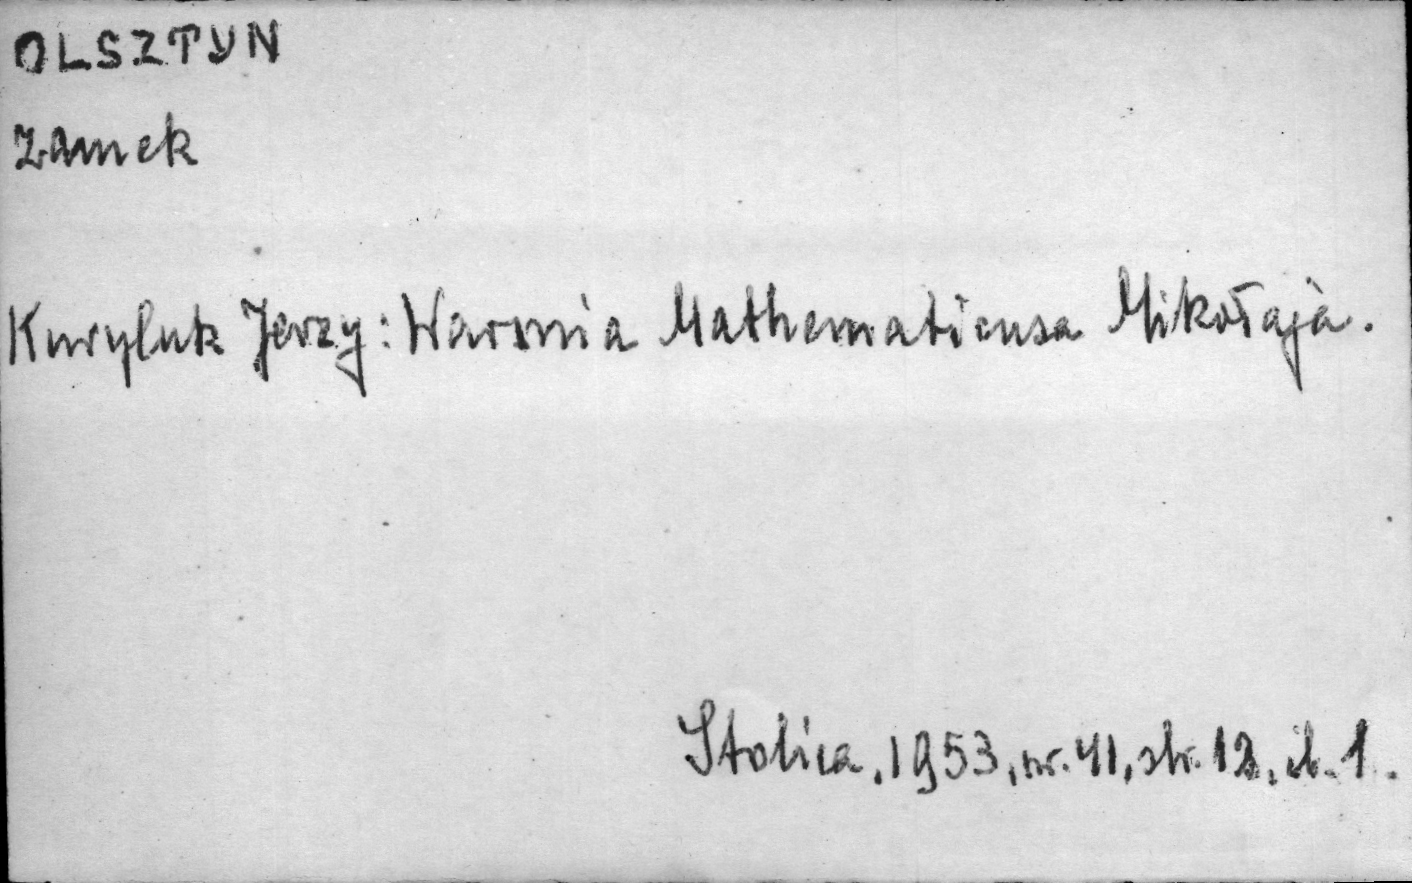 OLSZTYN
zamek
Kuryluk Jerzy: Warmia Mathematicusa Mikołaja.
Stolica, 1953, nr. 41, str. 12, il. 1.